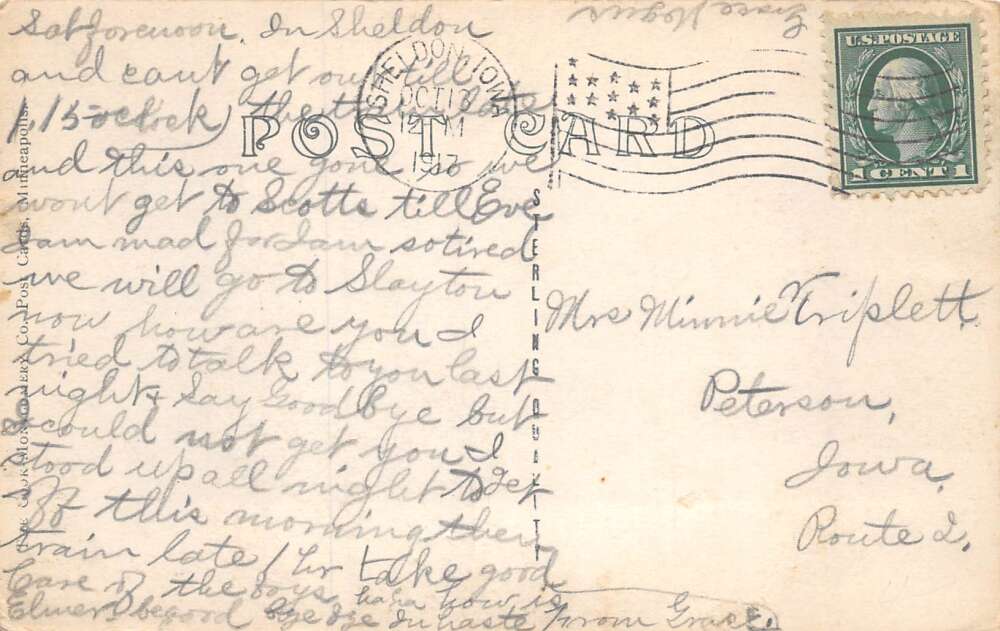 Sat forenoon. In Sheldon
and cant get out till
1,15-oclock, the train late
and this one gone so we
wont get to Scotts till Eve
I am mad for I am so tired
we will go to Slayton
now how are you I
tried to talk to you last
night & say Good bye but
could not get you I
stood up all night to get
of this morning then
train late 1 hr take good
Care of the boys haha how is
Elmer be good bye bye In haste from Grace.
Grace
SHELDON, IOWA
OCT 13
12 M
1917
U.S. POSTAGE
1 CENT 1
POST CARD
STERLING QUALITY
Co., Post Cards, Minneapolis.
Mrs Minnie Triplett
Peterson,
Iowa,
Route 2,